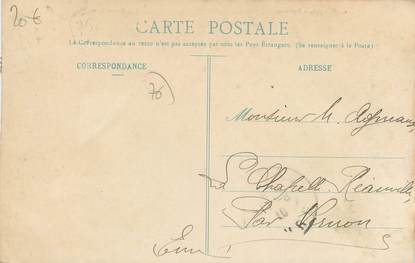 20€
CARTE POSTALE
La Correspondance au recto n'est pas acceptée par tous les Pays Étrangers. (Se renseigner à la Poste)
CORRESPONDANCE
ADRESSE
Monsieur
La Chapelle Réanville
Par Vernon